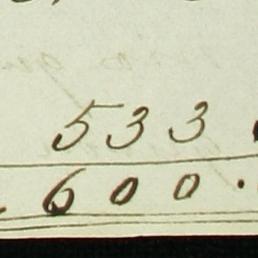 533
600.